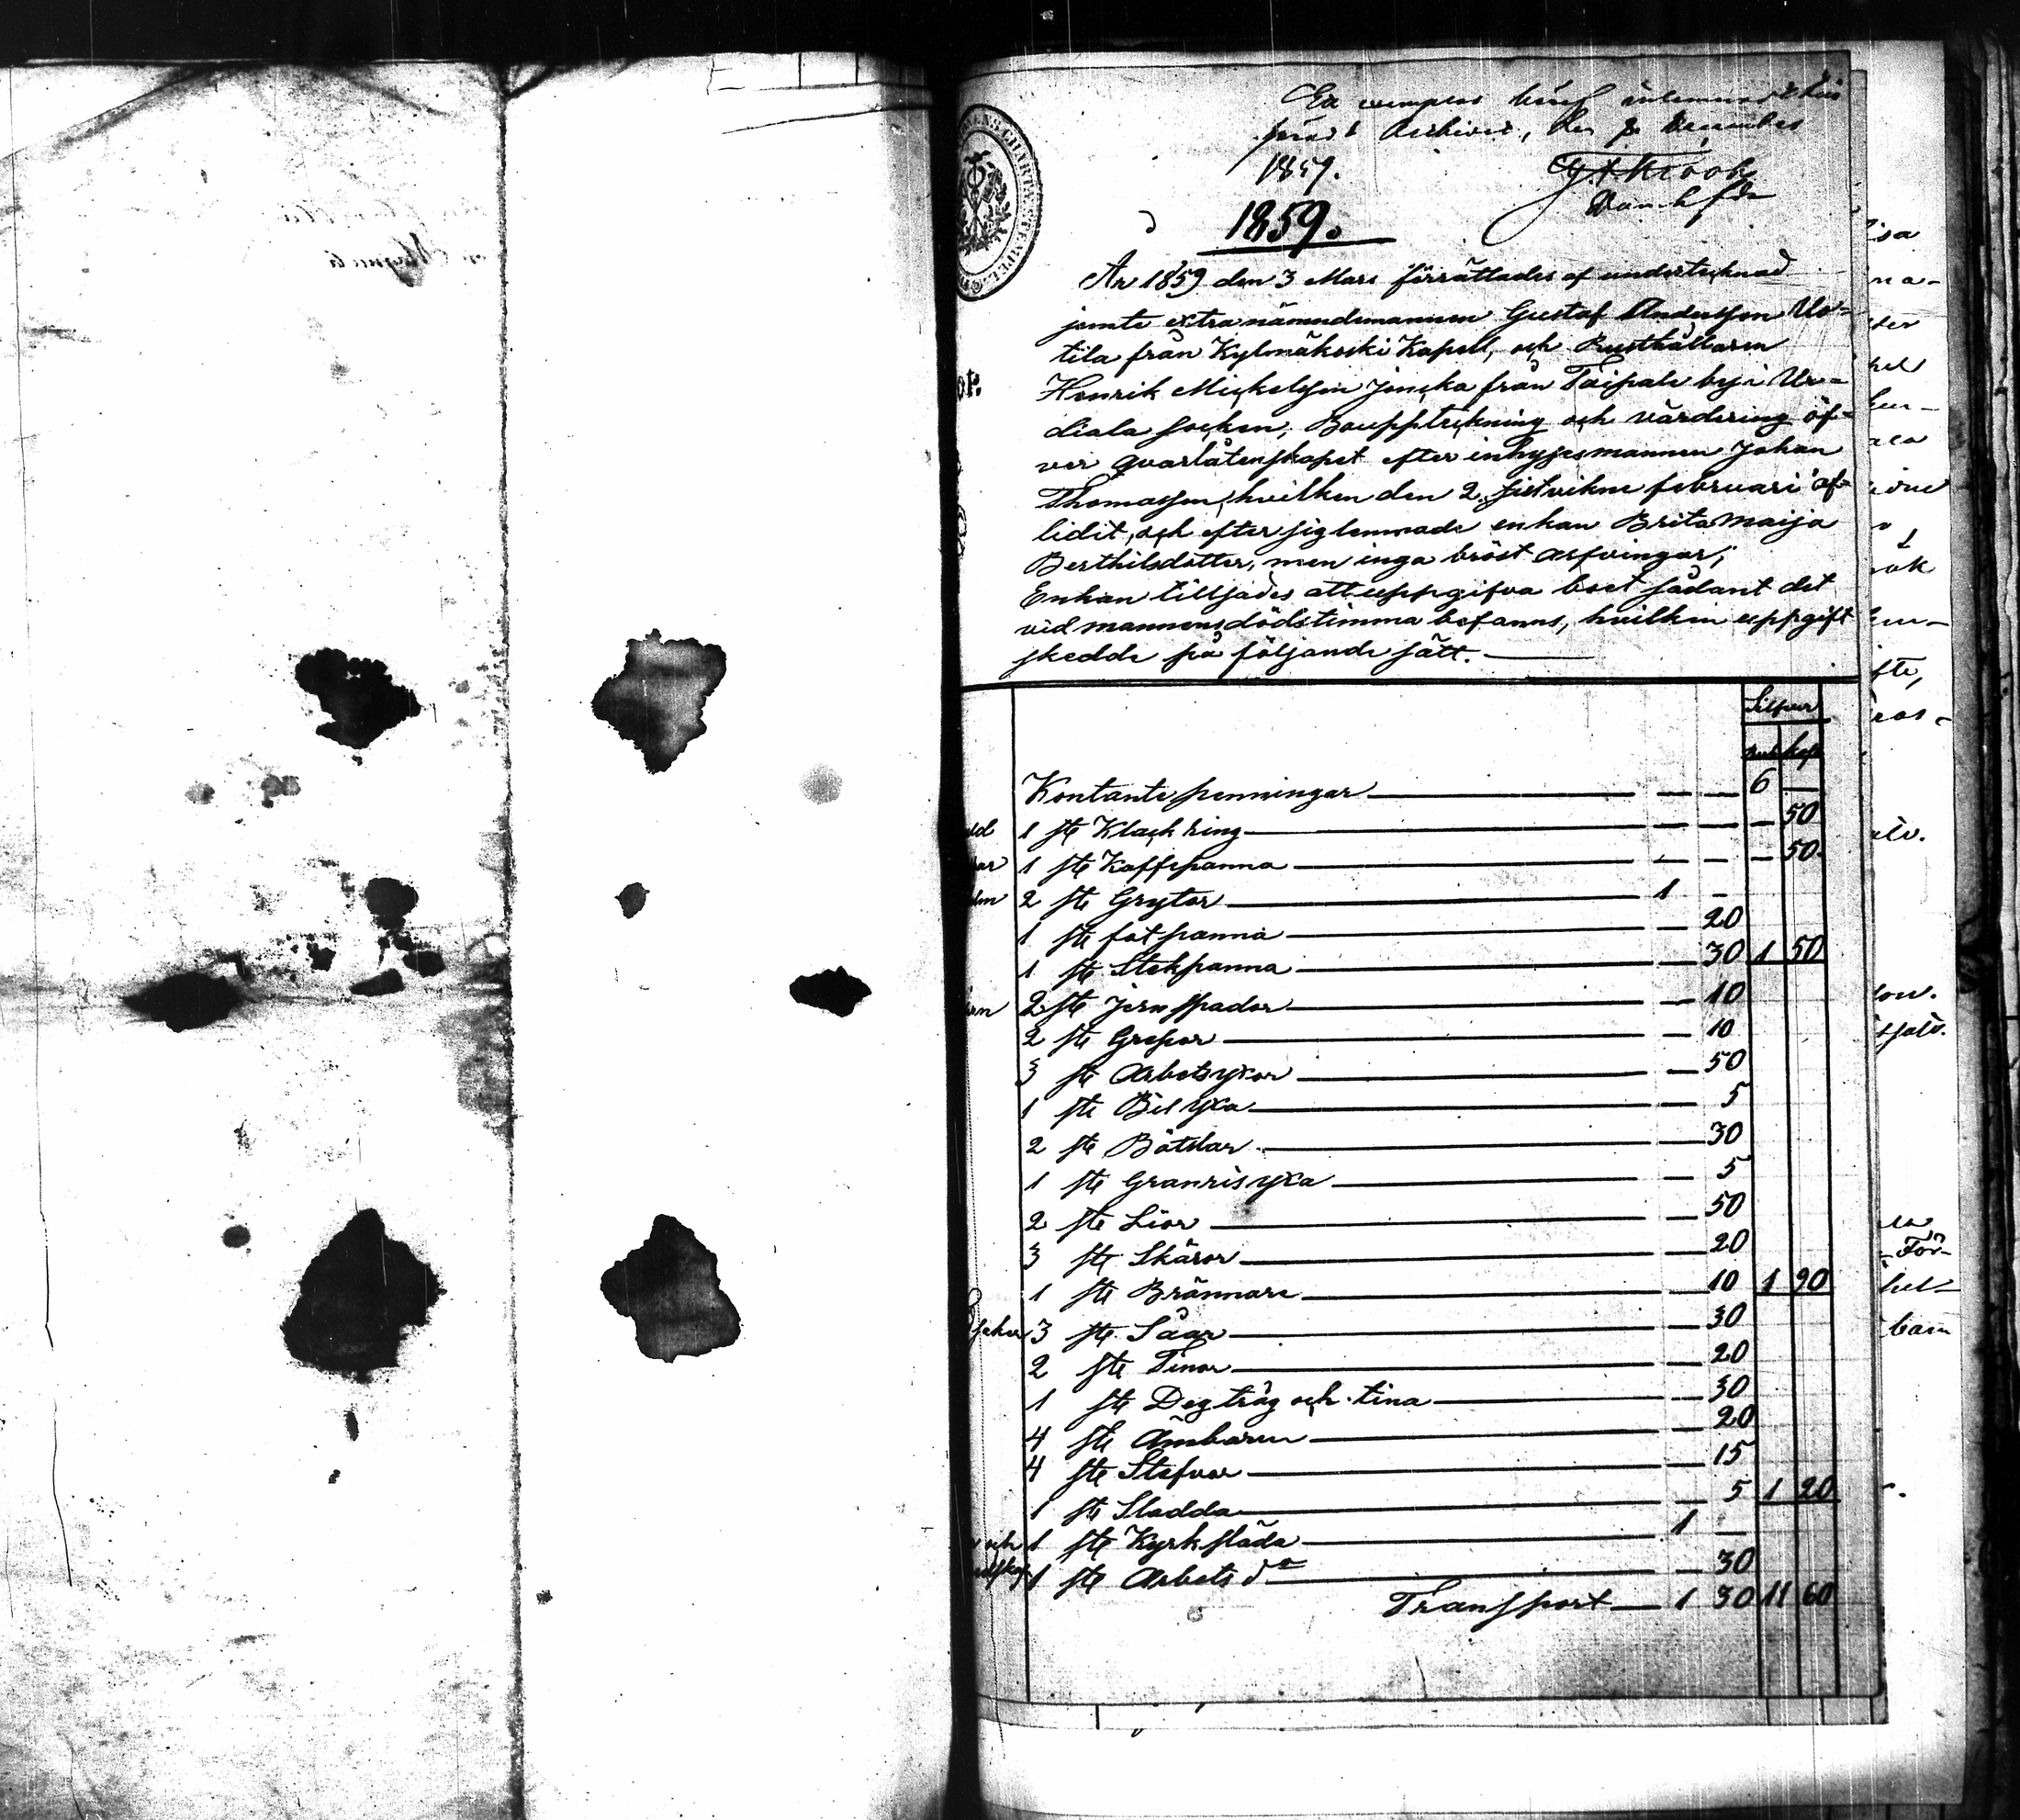 Ett exemplar häraf inlemnadt till
Arkivet, den 8 December
1859.
1859.
År 1859 den 3 Mars förrättades af undertecknad
jemte extra nämndemannen Gustaf Andersson Uo-
tila från Kylmäkoski Kapell, och Rusthållaren
Henrik Mickelsson Jonska från Taipale by i Ur-
diala socken, Boupptekning och värdering öf-
ver qvarlåtenskapet efter inhysesmannen Johan
Thomasson, hvilken den 2. sistvikne februari af-
lidit, och efter sig lemnade enkan Brita Maija
Berthilsdotter, men inga bröst arfvingar;
Enkan tillsades att uppgifva boet sådant det
vid mannens dödstimma befanns, hvilken uppgift
skedde på följande sätt.
Silfver
rub kop
Kontante penningar 6 —
1 st Klack ring — 50
1 st Kaffepanna — 50
2 st Grytor 1 —
1 st fatpanna — 20
1 st Stekpanna — 30 1 50
2 st Jernspador — 10
2 st Grepar — 10
3 st Arbetsyxor — 50
1 st Bilyxa — 5
2 st Bötslar — 30
1 st Granrisyxa — 5
2 st Liar — 50
3 st Skäror — 20
1 st Brännare — 10 1 90
3 st Såar — 30
2 st Tinor — 20
1 st Degtråg och tina — 30
4 st Ämbaren — 20
4 st Stefvor — 15
1 st Sladda — 5 1 20
1 st Kyrksläda 1 —
1 st Arbets do — 30
Transport — 1 30 11 60